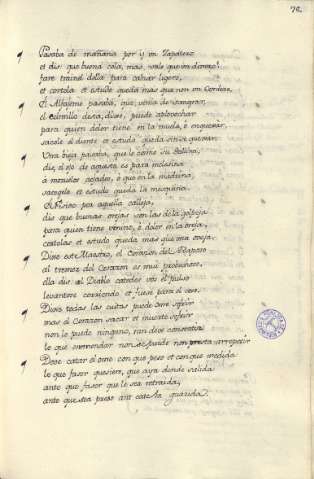 72.
Pasaba de mañana por y un Zapatero
et dis que buena cola, mas vale que un dinero!
fare traind della para calzar ligero,
et cortola et estudo queda mas que non un Cordero.
El Alfajeme pasaba, que venia de sangrar,
el colmillo desta, dise, puede aprovechar
para quien dolor tiene en la muela, ó en quexar,
sacole el diente et estudo queda sin se quexar.
Una vieja pasaba, que le comio su Gallina,
dis, el ojo de aquesta es para melesina
á mozuelas aojadas, é que an la madrina,
sacogelo et estudo queda la mesquina.
El Fisico por aquella calleja,
dis que buenas orejas son las de la gulpeja
para quien tiene venino, ó dolor en la oreja,
cortolas et estudo queda mas que una oveja.
Dixo este Maestro, el Corazon del Raposo
al tremor del Corazon es mui provechoso,
ella dis al Diablo catedes vos el pulso
levantose corriendo et fuxo por el coso.
Dixo todas las cuitas puede ome sofrir
mas el Corazon sacar et muerte sofrir
non lo puede ninguno, nin deve consentir
lo que emendar non se puede non presta arrepentir
Deve catar el ome con que peso et con que medida
lo que faser quisiere, que aya dende salida
ante que faser que le sea retraida,
ante que esta preso ant cate la guarida.